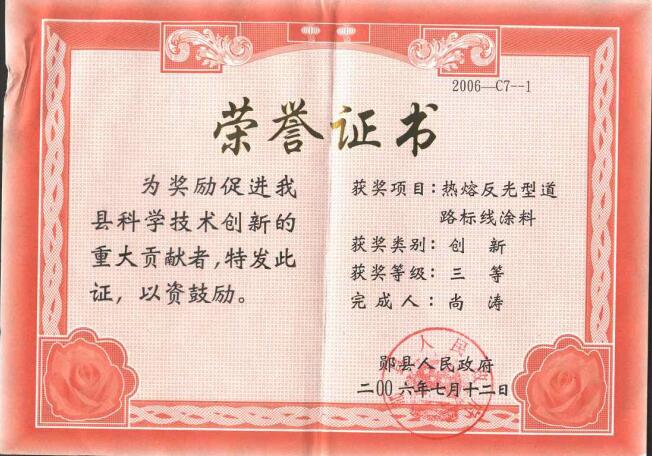 2006—C7--1
荣誉证书
为奖励促进我
县科学技术创新的
重大贡献者,特发此
证，以资鼓励。
获奖项目:热熔反光型道
路标线涂料
获奖类别:创 新
获奖等级:三 等
完成人:尚 涛
郧县人民政府
二00六年七月十二日